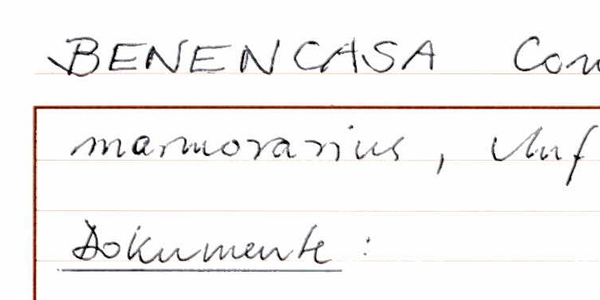 BENENCASA Com
marmorarius,
Dokumente :